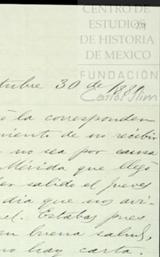 CENTRO DE
ESTUDIOS
DE HISTORIA
DE MEXICO
FUNDACIÓN
Carlos Slim
tubre 30 de
la corresponden
miento de su recibo
no sea por causa
Mérida que llegó
salido el jueves
dia que nos avi
Estabas pues
buena salud,
no hay carta.